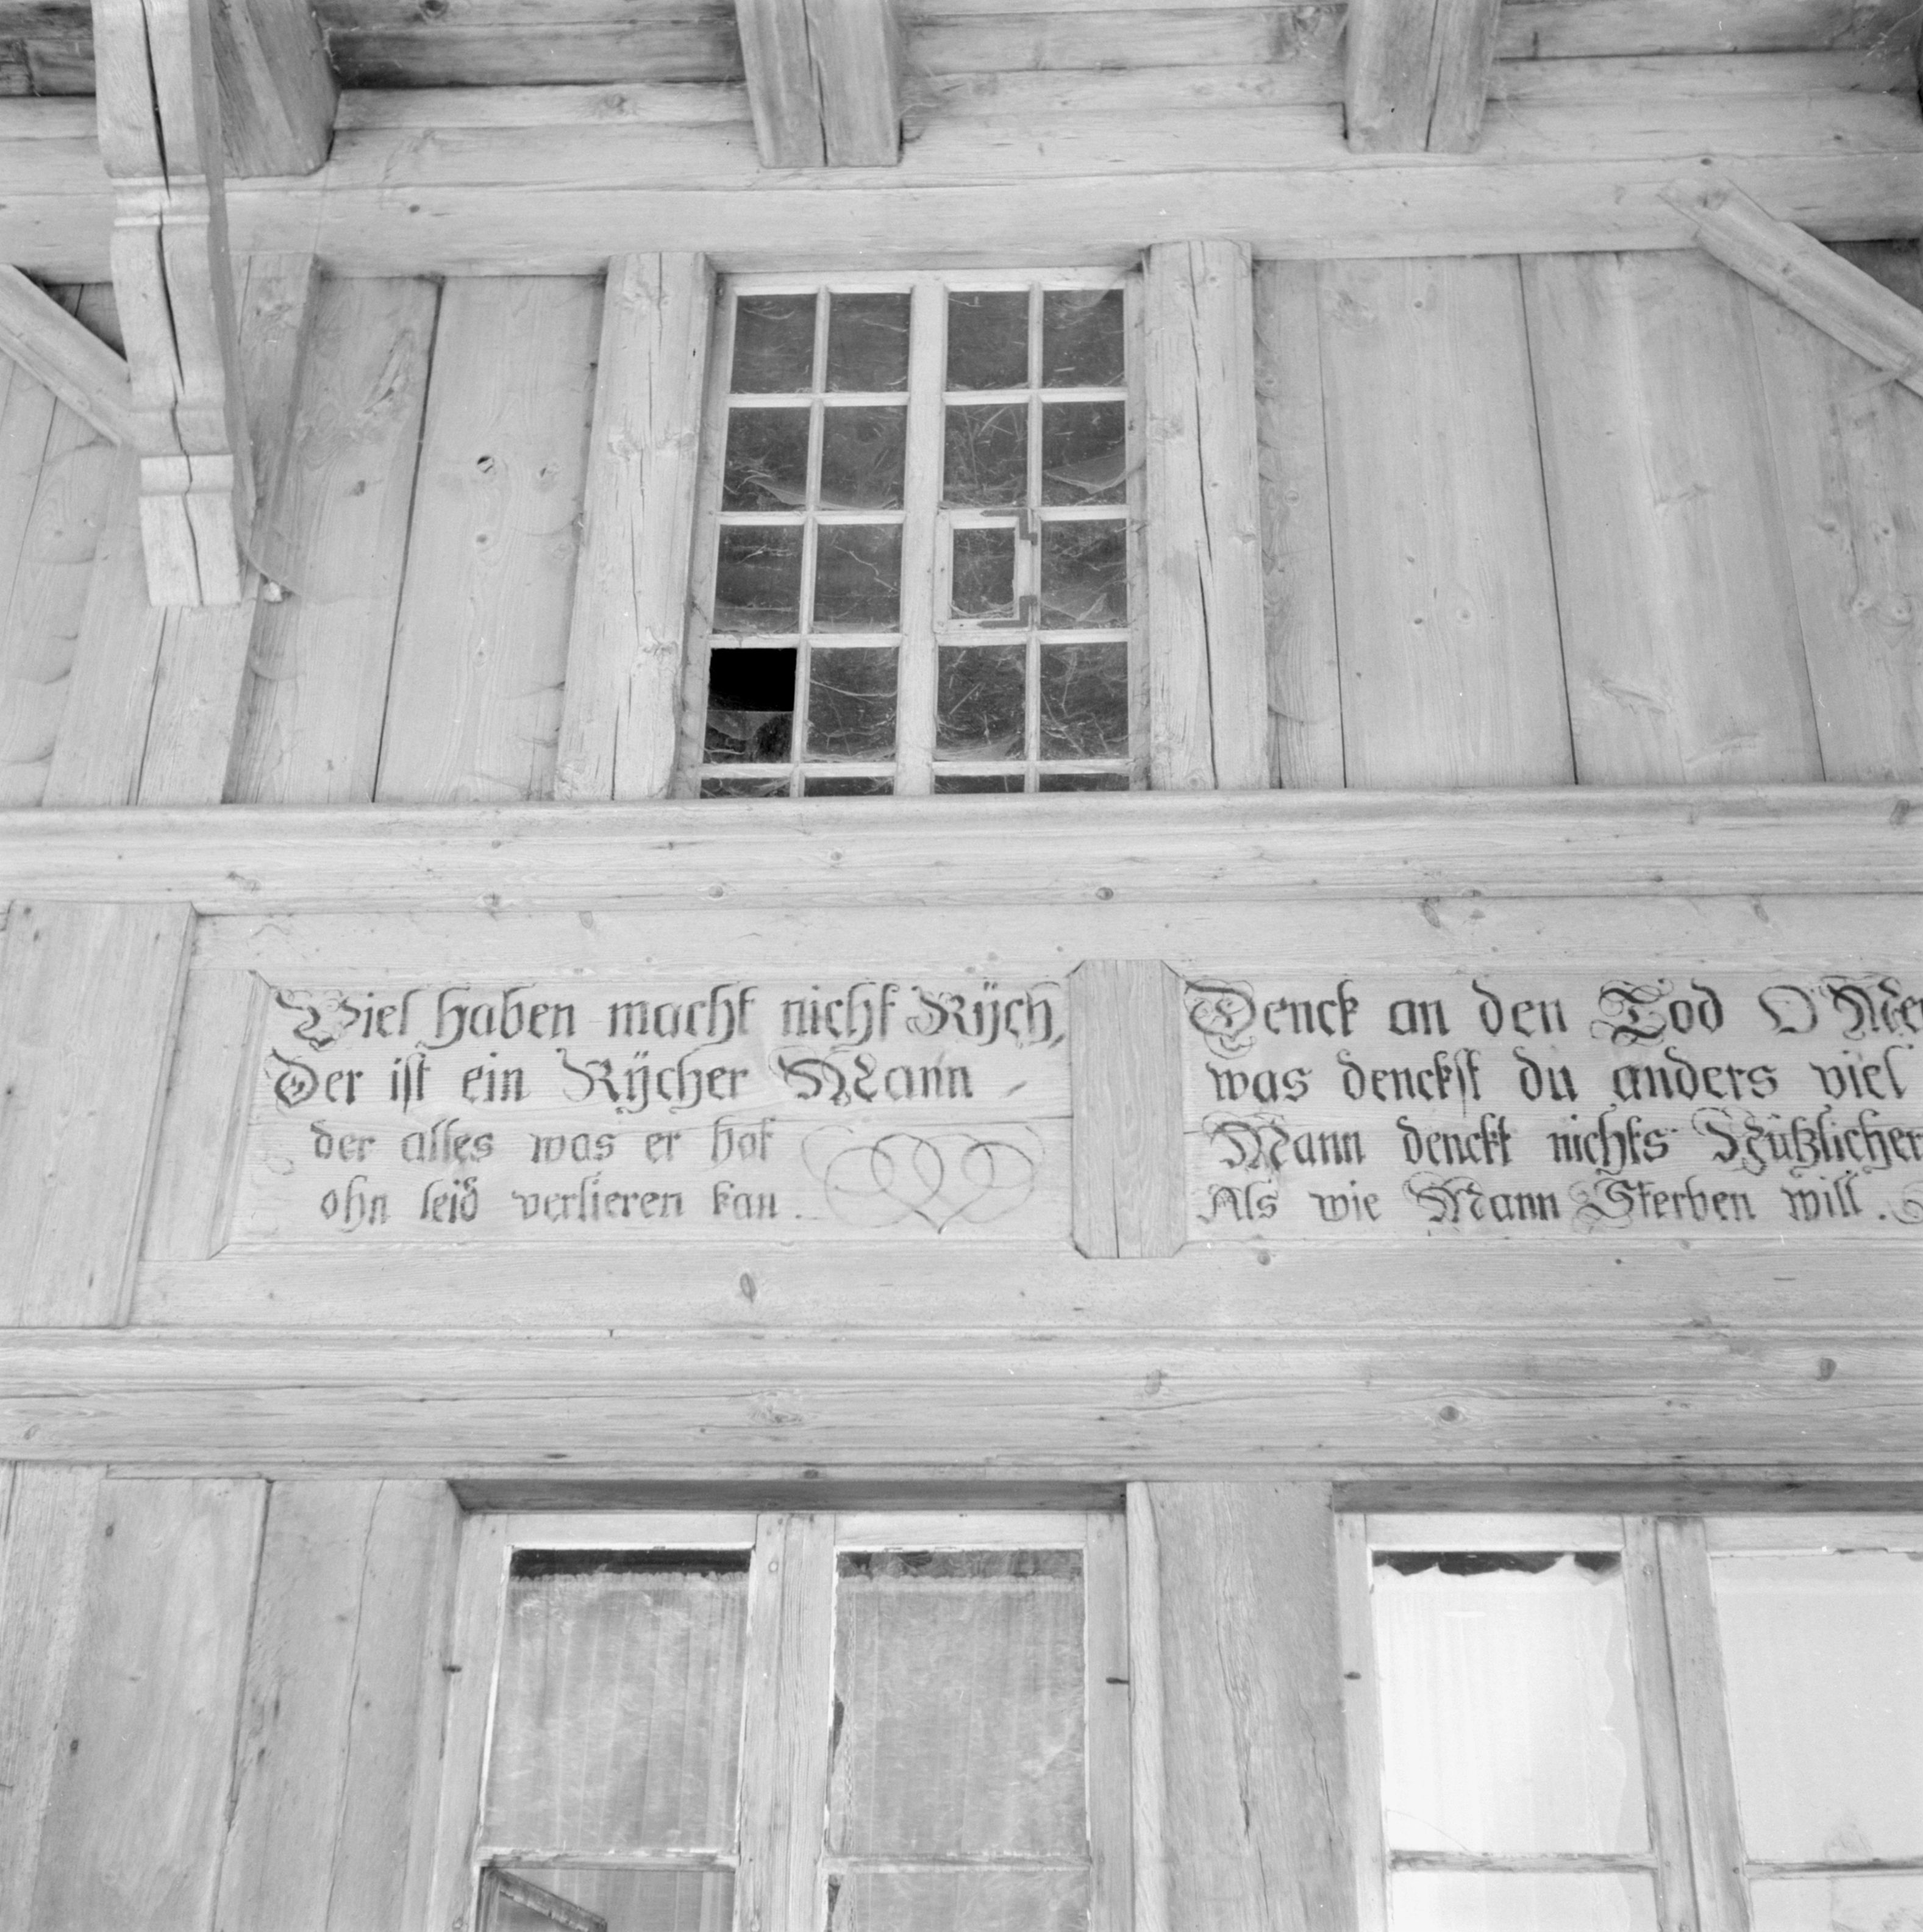 Viel haben macht nicht Rÿch,
Der ist ein Rÿcher Mann
der alles was er hat
ohn leid verlieren kan.
Denck an den Tod O Me
was denckst du anders viel
Mann denckt nichts Nützlicher
Als wie Mann Sterben will.